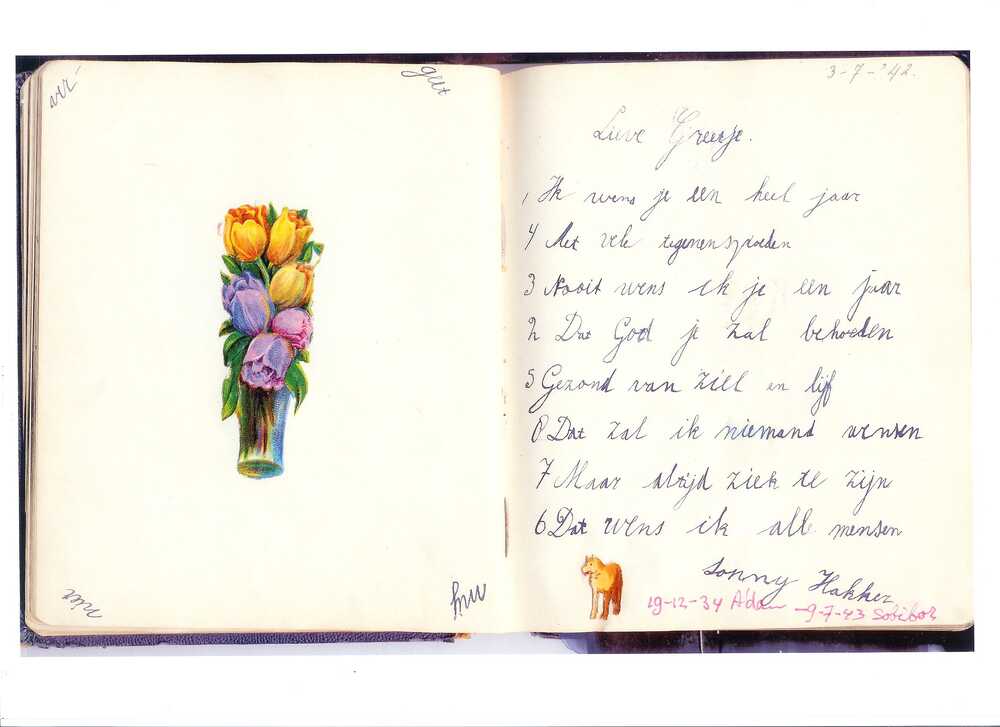 ver
geet
mij
niet
3-7-'42.
Lieve Greetje.
1 Ik wens je een heel jaar
4 Met vele tegenenspoeden
3 Nooit wens ik je een jaar
2 Dat God je zal behoeden
5 Gezond van ziel en lijf
8 Dat zal ik niemand wensen
7 Maar altijd ziek te zijn
6 Dat wens ik alle mensen
Sonny Hakker
19-12-34 A'dam -9-7-43 Sobibor